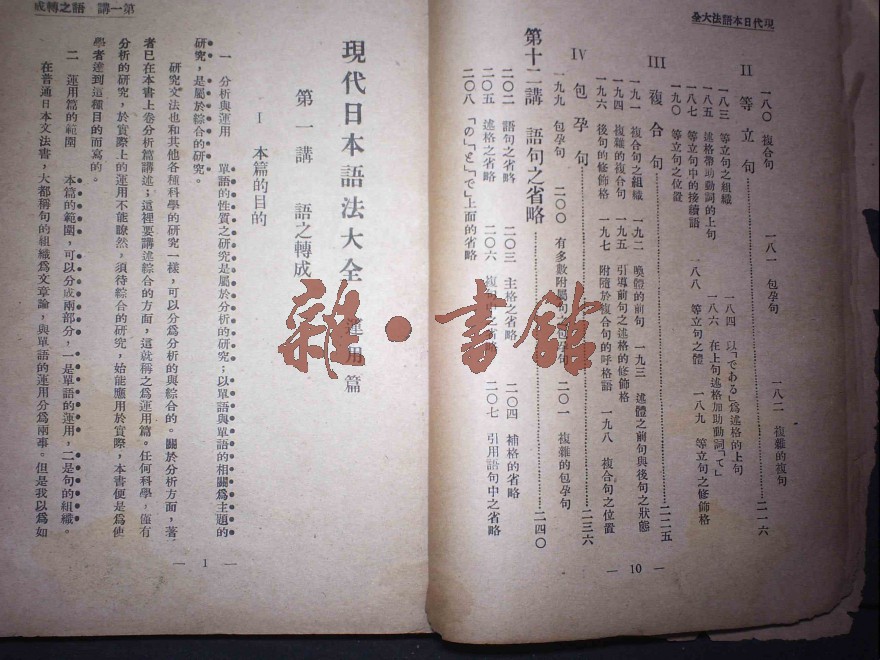 現代日本語法大全
一八〇 複合句 一八一 包孕句 一八二 複雜的複句
II 等立句……二一六
一八三 等立句之組織 一八四 以「である」爲述格的上句
一八五 述格帶助動詞的上句 一八六 在上句述格加助動詞「て」
一八七 等立句中的接續語 一八八 等立句之體 一八九 等立句之修飾格
一九〇 等立句之位置
III 複合句……二二五
一九一 複合句之組織 一九二 喚體的前句 一九三 述體之前句與後句之狀態
一九四 複雜的複合句 一九五 引導前句之述格的修飾格
一九六 後句的修飾格 一九七 附隨於複合句的呼格語 一九八 複合句之位置
IV 包孕句……二三六
一九九 包孕句 二〇〇 有多數附屬句之包孕句 二〇一 複雜的包孕句
第十二講 語句之省略……二四〇
二〇二 語句之省略 二〇三 主格之省略 二〇四 補格的省略
二〇五 述格之省略 二〇六 複 二〇七 引用語句中之省略
二〇八 「の」「と」「で」上面的省略
— 10 —
第一講 語之轉成
現代日本語法大全 運用篇
第一講 語之轉成
I 本篇的目的
一 分析與運用 單語的性質之研究是屬於分析的研究；以單語與單語的相關爲主題的
研究，是屬於綜合的研究。
研究文法也和其他各種科學的研究一樣，可以分爲分析的與綜合的。關於分析方面，著
者已在本書上卷分析篇講述；這裡要講述綜合的方面，這就稱之爲運用篇。任何科學，僅有
分析的研究，於實際上的運用不能瞭然，須待綜合的研究，始能應用於實際，本書便是爲使
學者達到這種目的而寫的。
二 運用篇的範圍 本篇的範圍，可以分成兩部分，一是單語的運用，二是句的組織。
在普通日本文法書，大都稱句的組織爲文章論，與單語的運用分爲兩事。但是我以爲如
— 1 —
雜·書館